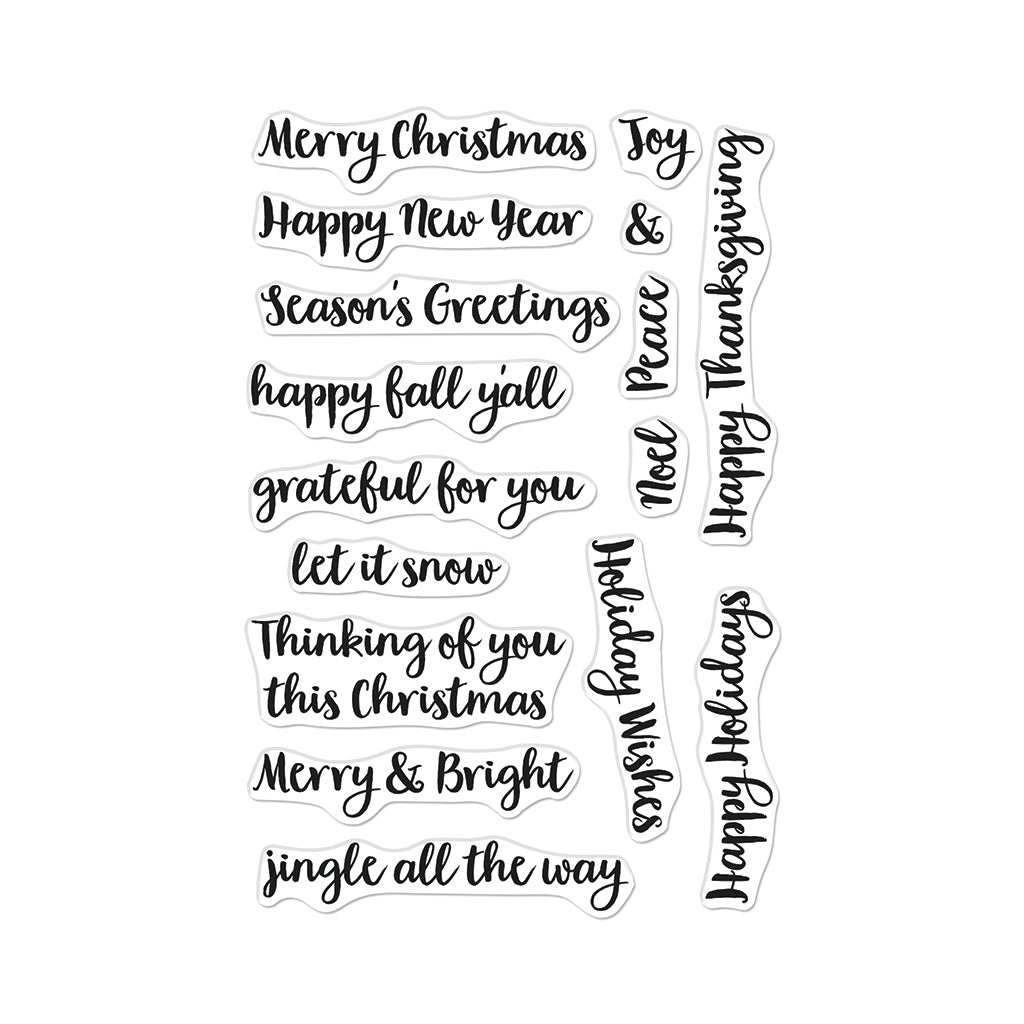 Merry Christmas
Happy New Year
Season's Greetings
happy fall y'all
grateful for you
let it snow
Thinking of you
this Christmas
Merry & Bright
jingle all the way
Joy
&
Peace
Noel
Happy Thanksgiving
Holiday Wishes
Happy Holidays